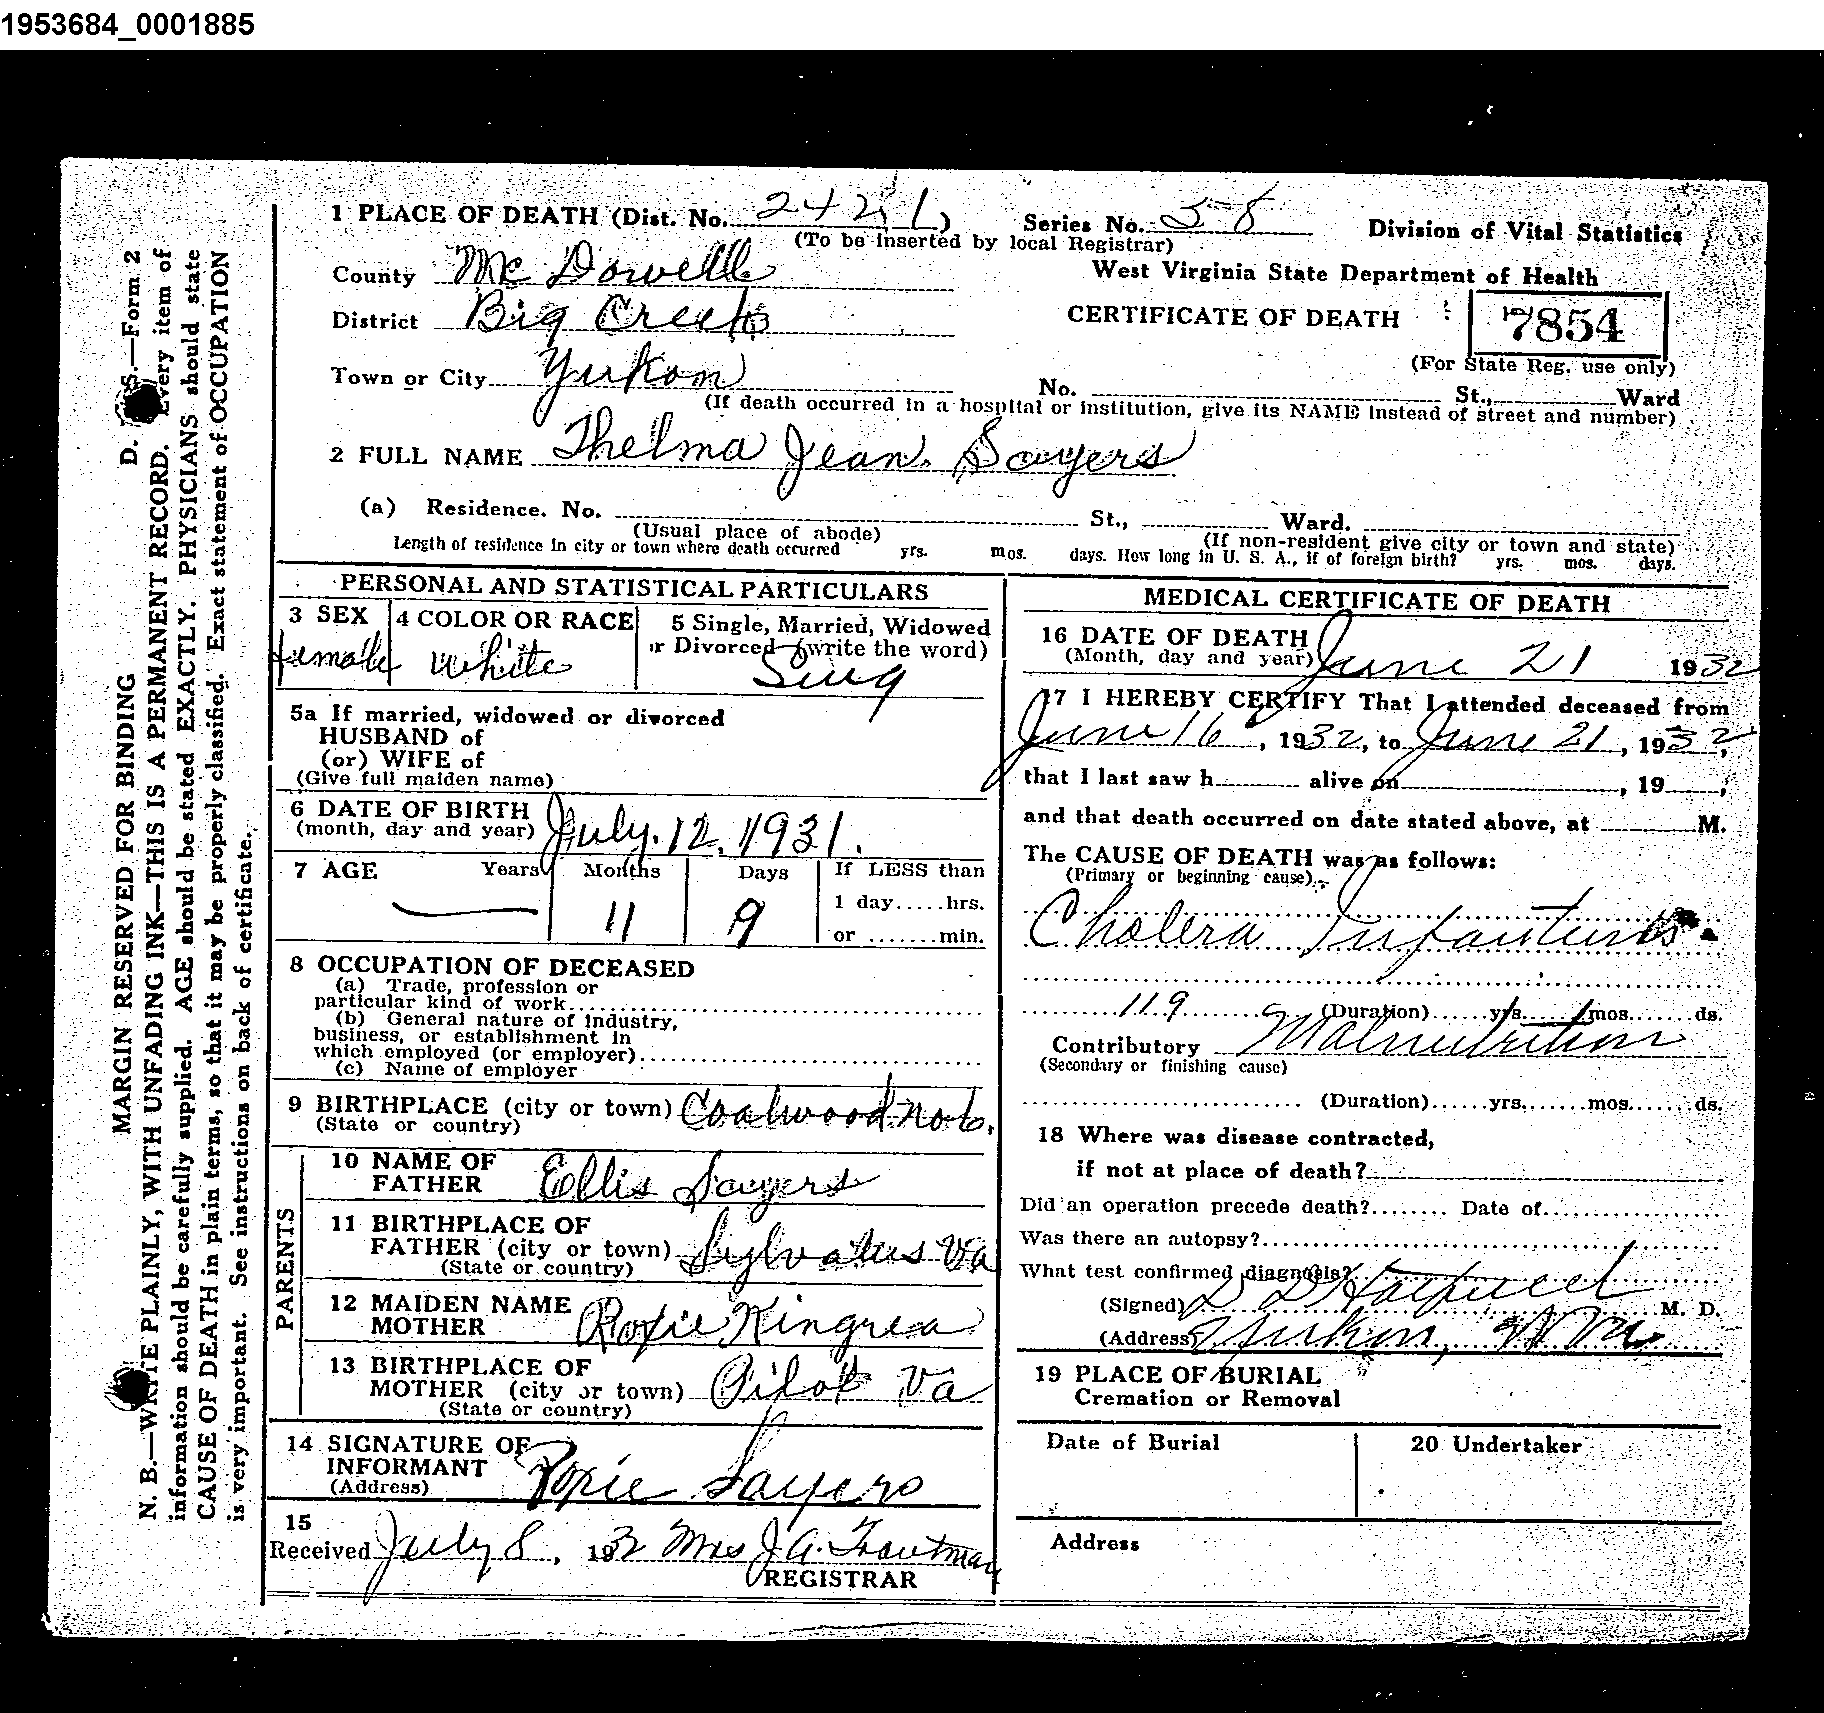 1953684_0001885
1 PLACE OF DEATH (Dist. No. 2421)
Series No. 58
Division of Vital Statistics
(To be inserted by local Registrar)
County Mc Dowell
West Virginia State Department of Health
District Big Creek
CERTIFICATE OF DEATH
7854
(For State Reg. use only)
Town or City Yukon
No. St., Ward
(If death occurred in a hospital or institution, give its NAME instead of street and number)
2 FULL NAME Thelma Jean. Sayers
(a) Residence. No. St., Ward.
(Usual place of abode) (If non-resident give city or town and state)
Length of residence in city or town where death occurred yrs. mos. days. How long in U. S. A., if of foreign birth? yrs. mos. days.
PERSONAL AND STATISTICAL PARTICULARS
3 SEX
female
4 COLOR OR RACE
white
5 Single, Married, Widowed
or Divorced (write the word)
Sing
5a If married, widowed or divorced
HUSBAND of
(or) WIFE of
(Give full maiden name)
6 DATE OF BIRTH
(month, day and year) July. 12. 1931.
7 AGE Years Months Days If LESS than
1 day.....hrs.
— 11 9
or .......min.
8 OCCUPATION OF DECEASED
(a) Trade, profession or
particular kind of work
(b) General nature of industry,
business, or establishment in
which employed (or employer)
(c) Name of employer
9 BIRTHPLACE (city or town) Coalwood no 6.
(State or country)
PARENTS
10 NAME OF
FATHER Ellis Sayers
11 BIRTHPLACE OF
FATHER (city or town) Sylvatus Va
(State or country)
12 MAIDEN NAME
MOTHER Roxie Kingrea
13 BIRTHPLACE OF
MOTHER (city or town) Pilot Va
(State or country)
14 SIGNATURE OF
INFORMANT Roxie Sayers
(Address)
15
Received July 8, 1932 Mrs J. A. Trautman
REGISTRAR
MEDICAL CERTIFICATE OF DEATH
16 DATE OF DEATH
(Month, day and year) June 21 1932
17 I HEREBY CERTIFY That I attended deceased from
June 16, 1932, to June 21, 1932,
that I last saw h alive on , 19 ,
and that death occurred on date stated above, at M.
The CAUSE OF DEATH was as follows:
(Primary or beginning cause)
Cholera Infantum
119 (Duration)......yrs.......mos.......ds.
Contributory Malnutrition
(Secondary or finishing cause)
(Duration)......yrs.......mos.......ds.
18 Where was disease contracted,
if not at place of death?
Did an operation precede death?........ Date of
Was there an autopsy?
What test confirmed diagnosis?
(Signed) M. D.
(Address) Yukon, W Va.
19 PLACE OF BURIAL
Cremation or Removal
Date of Burial
20 Undertaker
Address
MARGIN RESERVED FOR BINDING D. S.—Form 2
N. B.—WRITE PLAINLY, WITH UNFADING INK—THIS IS A PERMANENT RECORD. Every item of
information should be carefully supplied. AGE should be stated EXACTLY. PHYSICIANS should state
CAUSE OF DEATH in plain terms, so that it may be properly classified. Exact statement of OCCUPATION
is very important. See instructions on back of certificate.